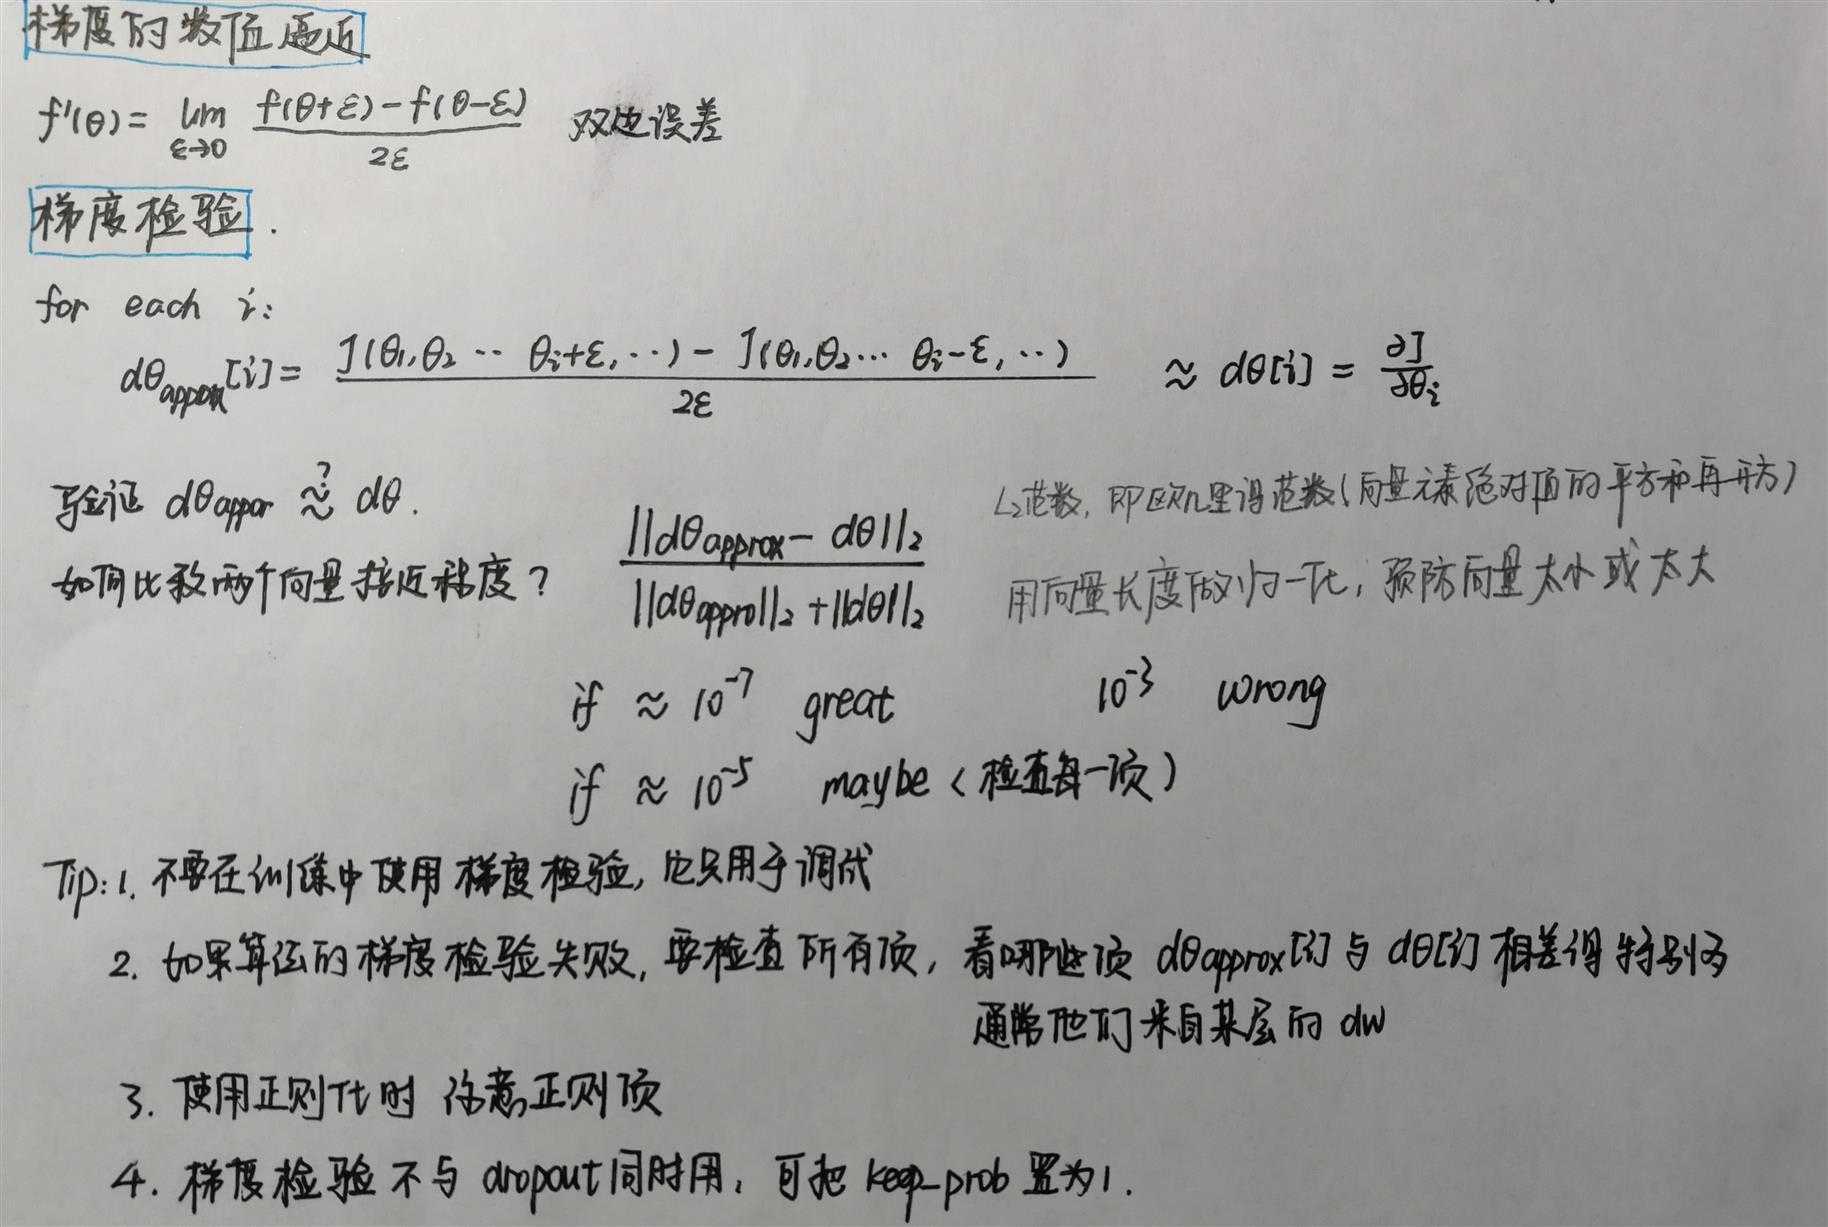 梯度的数值逼近
f'(θ) = lim ε→0 (f(θ+ε) - f(θ-ε)) / 2ε 双边误差
梯度检验.
for each i:
dθapprox[i] = (J(θ1,θ2 ·· θi+ε, ··) - J(θ1,θ2··· θi-ε, ··)) / 2ε ≈ dθ[i] = ∂J/∂θi
验证 dθappor ≈? dθ.
如何比较两个向量接近程度?
||dθapprox - dθ||2 / (||dθappro||2 + ||dθ||2)
L2范数, 即欧几里得范数(向量元素绝对值的平方和再开方)
用向量长度做归一化, 预防向量太小或太大
if ≈ 10^-7 great 10^-3 wrong
if ≈ 10^-5 maybe (检查每一项)
Tip: 1. 不要在训练中使用梯度检验, 它只用于调试
2. 如果算法的梯度检验失败, 要检查所有项, 看哪些项 dθapprox[i] 与 dθ[i] 相差得特别多
通常他们来自某层的 dw
3. 使用正则化时 注意正则项
4. 梯度检验不与 dropout 同时用, 可把 keep_prob 置为1.